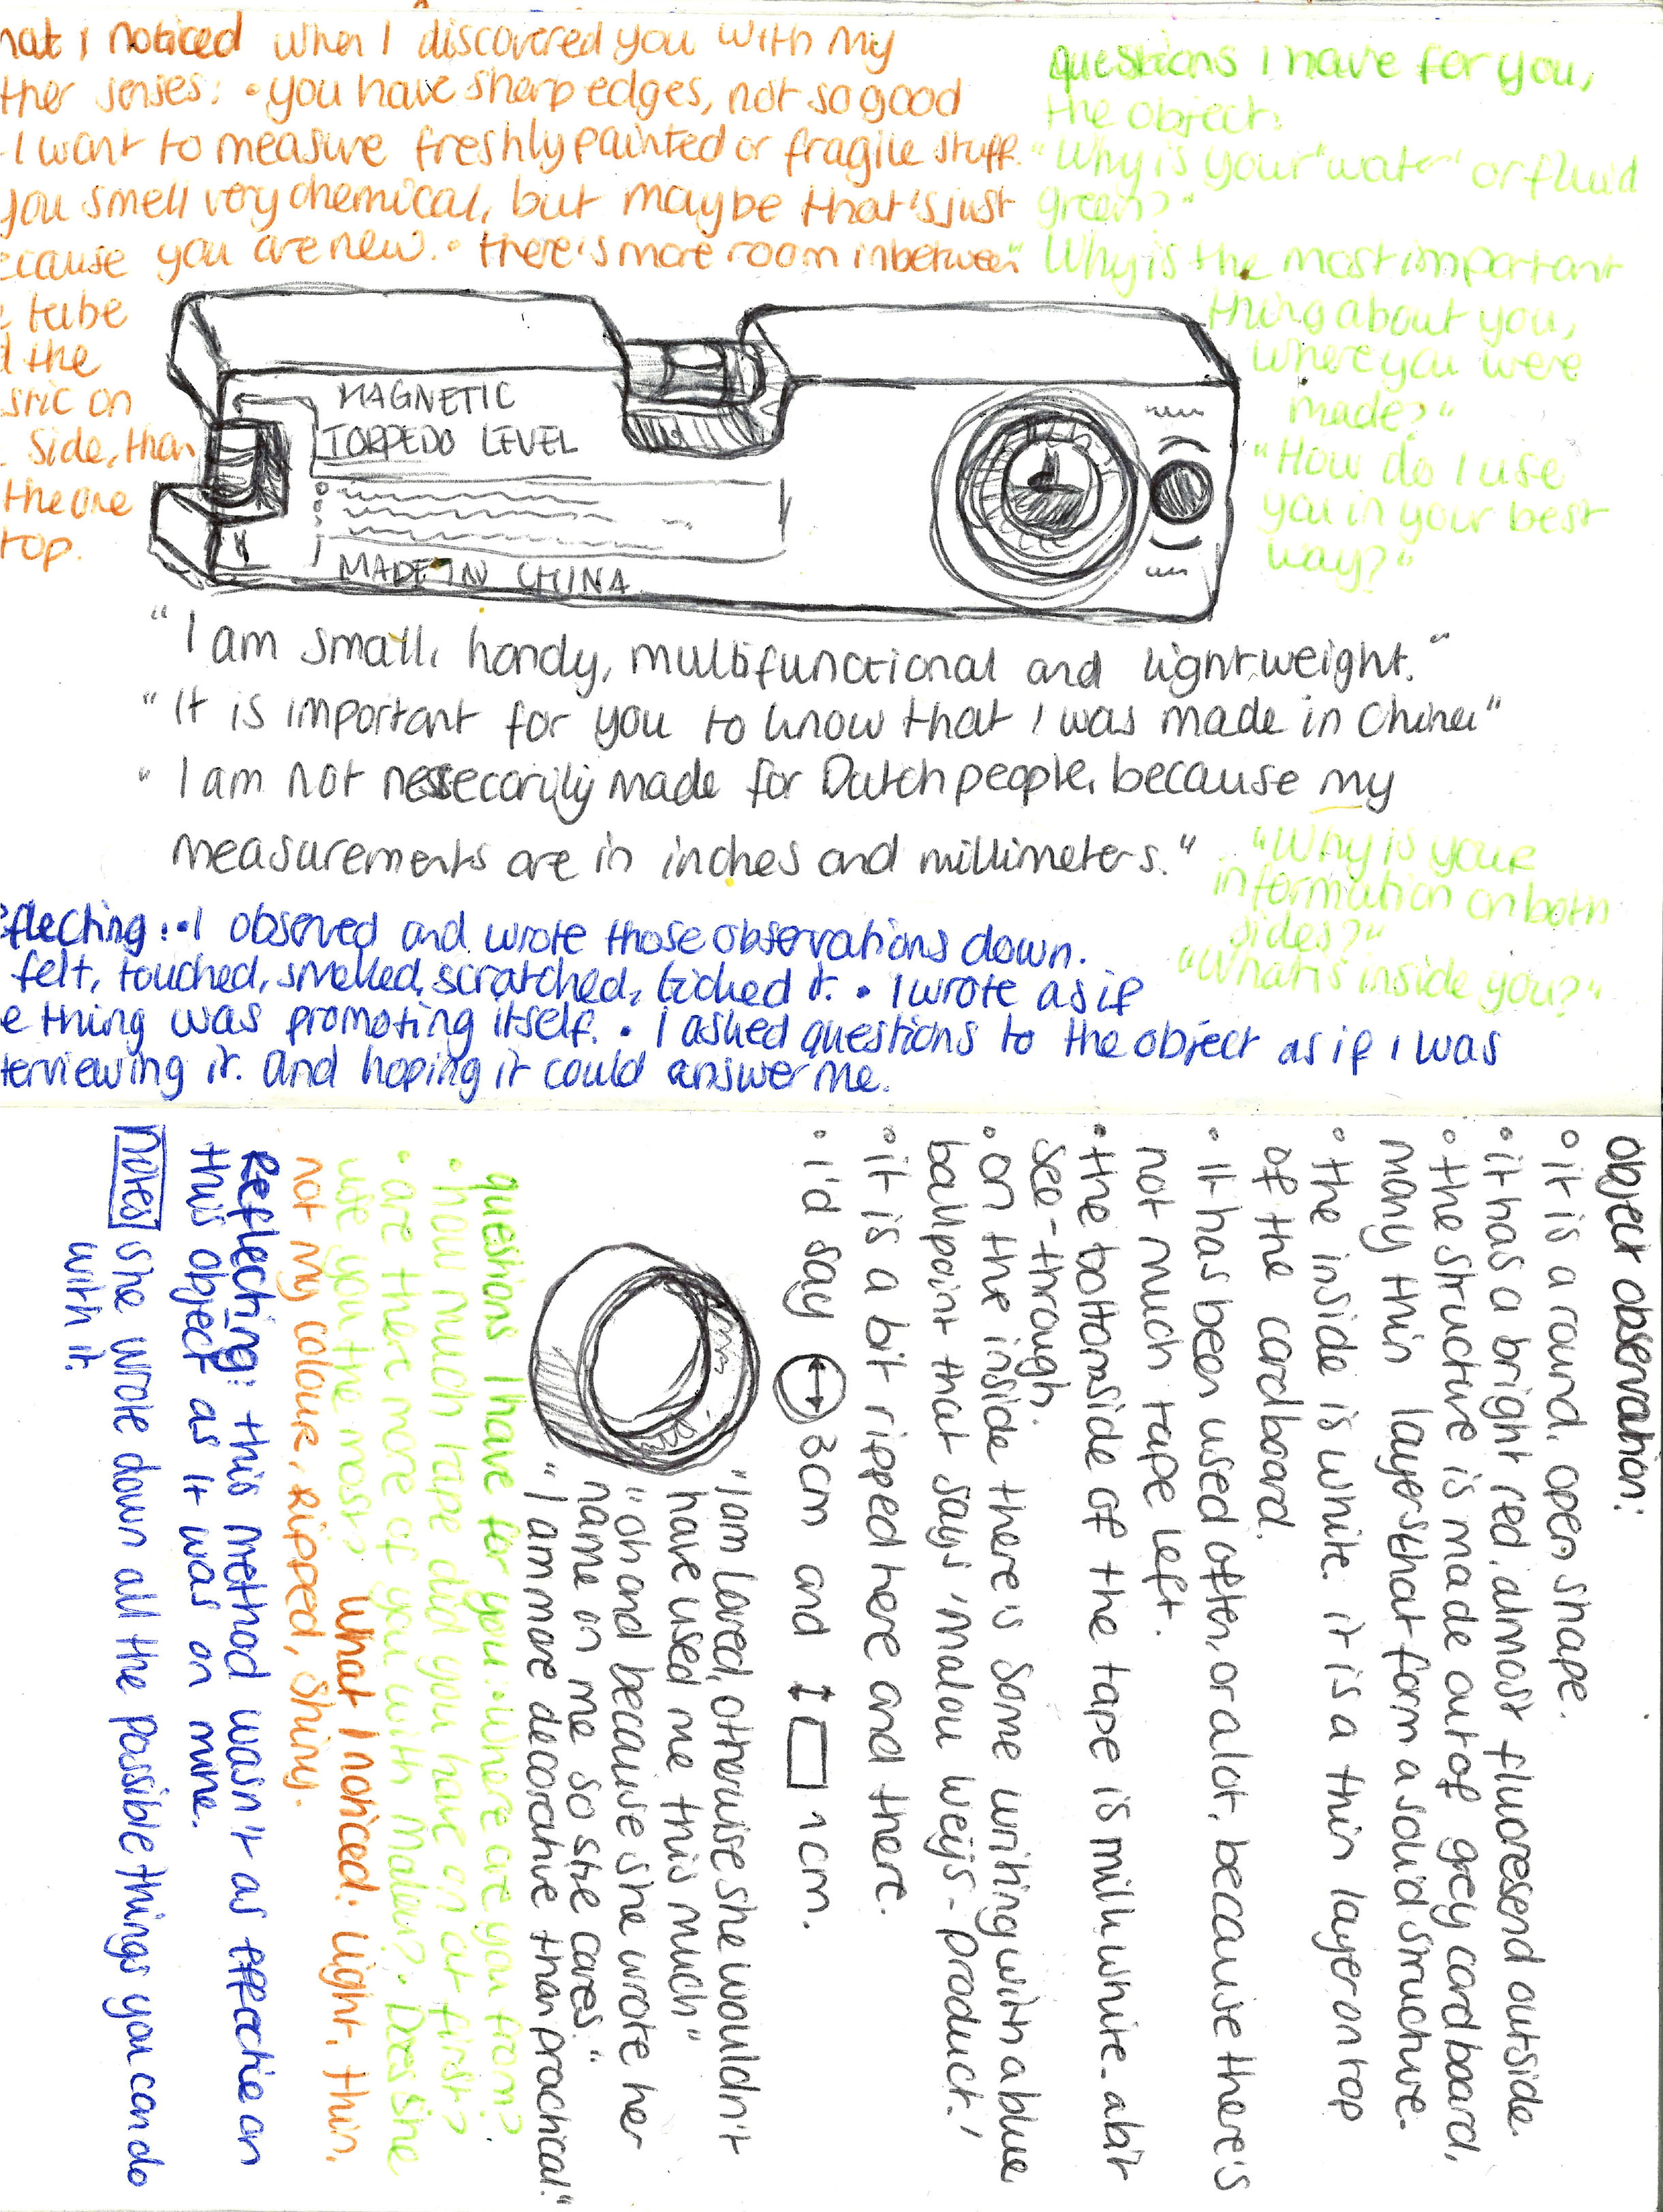 hat I noticed when I discovered you with my
ther senses: • you have sharp edges, not so good
I want to measure freshly painted or fragile stuff.
you smell very chemical, but maybe that's just
ecause you are new. • there is more room inbetween
e tube
d the
stic on
side, than
the one
top.
Questions I have for you,
the object:
"Why is your "water" or fluid
green?"
"Why is the most important
thing about you,
where you were
made?"
"How do I use
you in your best
way?"
MAGNETIC
TORPEDO LEVEL
MADE IN CHINA
"I am small, handy, multifunctional and lightweight."
"It is important for you to know that I was made in China"
"I am not nessecarily made for Dutch people, because my
measurements are in inches and millimeters."
"Why is your
information on both
sides?"
"What is inside you?"
eflecting: • I observed and wrote those observations down.
felt, touched, smelled, scratched, ticked it. • I wrote as if
e thing was promoting itself. • I asked questions to the object as if I was
terviewing it. and hoping it could answer me.
object observation:
• it is a round, open shape.
• it has a bright red, almost fluoresend outside.
• the structure is made out of grey cardboard,
many thin layers that form a solid structure.
• the inside is white. it is a thin layer on top
of the cardboard.
• it has been used often, or a lot, because there's
not much tape left.
• the bottomside of the tape is milk white - a bit
see-through.
• on the inside there is some writing with a blue
ballpoint that says 'malou weijs - product.'
• it is a bit ripped here and there.
• i'd say 3cm and 1cm.
"I am loved, otherwise she wouldn't
have used me this much"
"oh and because she wrote her
name in me so she cares."
"I am more decorative than practical."
questions I have for you: • where are you from?
• how much tape did you have on at first?
• are there more of you with Malou? • Does she
use you the most? What I noticed: light, thin,
not my colour, ripped, shiny.
Reflecting: this method wasn't as effectie on
this object as it was on mine.
Notes she wrote down all the possible things you can do
with it.